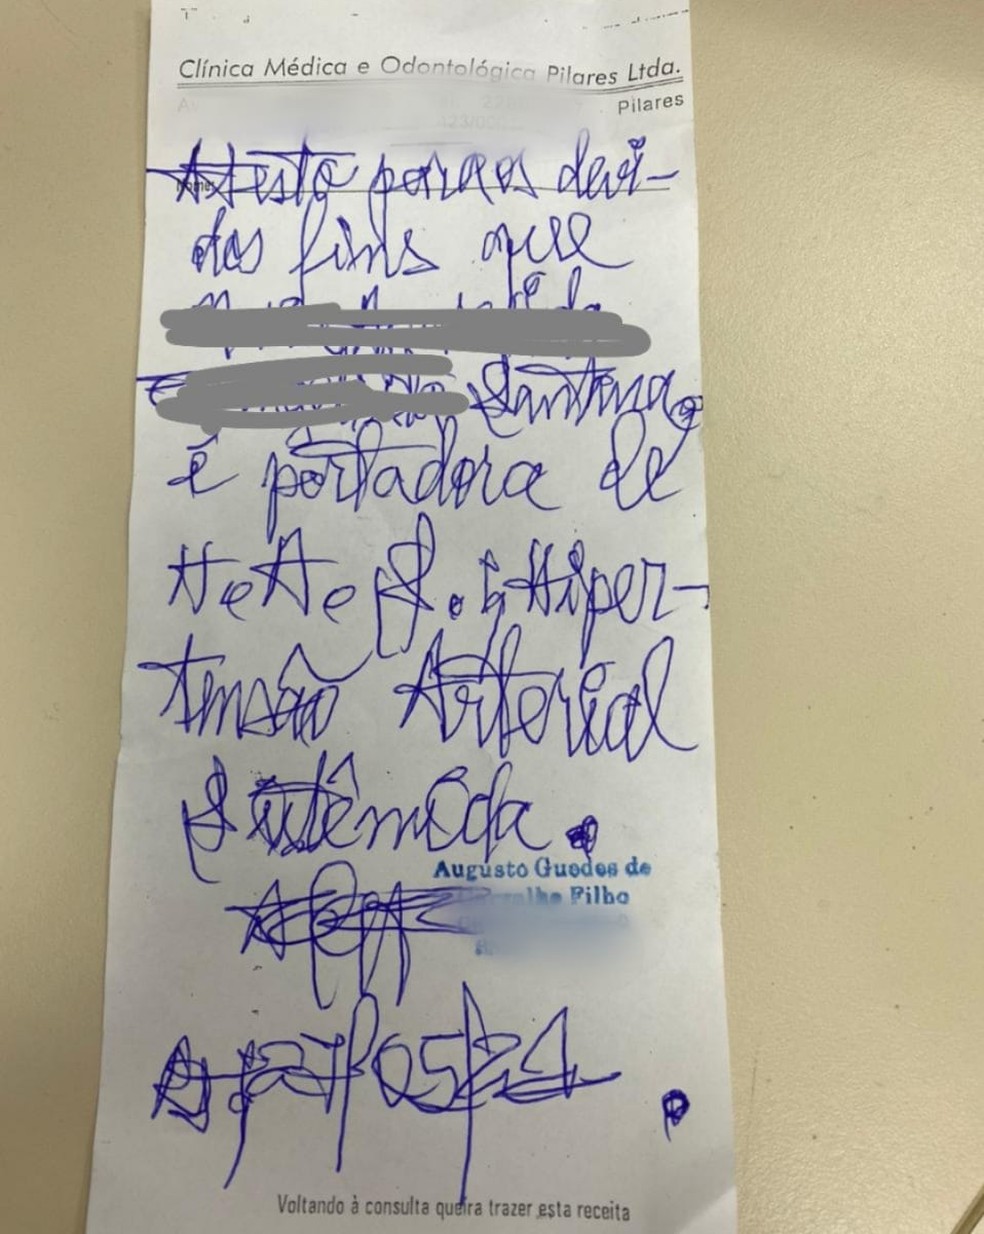 Clínica Médica e Odontológica Pilares Ltda.
Pilares
Nome:
Atesto para os devi-
dos fins que
Santana,
é portadora de
H.A.S. Hiper-
tensão Arterial
Sistêmica.
Augusto Guedes de
Carvalho Filho
27/05/21
Voltando à consulta queira trazer esta receita